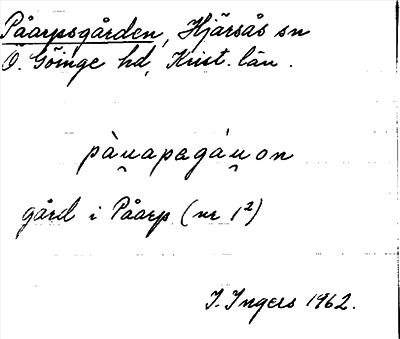 Påarpsgården, Hjärsås sn
Ö. Göinge hd, Krist. län.
pàu̯apagȧu̯on
gård i Påarp (nr 1²)
I. Ingers 1962.